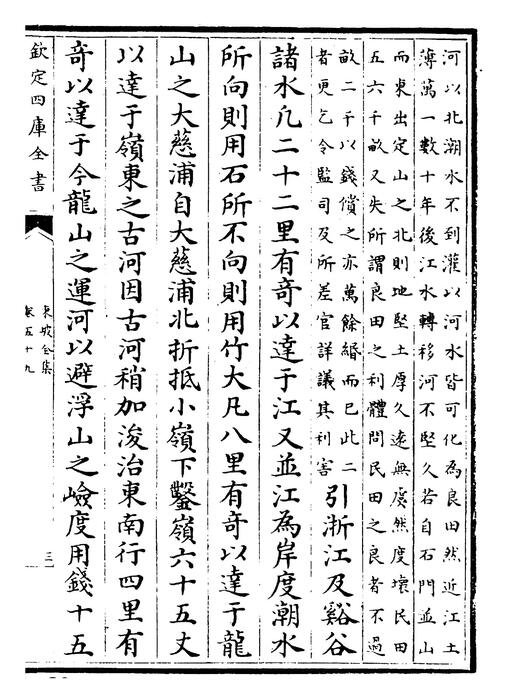 河以北潮水不到灌以河水皆可化為良田然近江土
薄萬一數十年後江水轉移河不堅久若自石門並山
而東出定山之北則地堅土厚久遠無虞然度壞民田
五六千畝又失所謂良田之利體問民田之良者不過
畝二千以錢償之亦萬餘緡而已此二
者更乞令監司及所差官詳議其利害
引浙江及谿谷
諸水凡二十二里有奇以達于江又並江為岸度潮水
所向則用石所不向則用竹大凡八里有奇以達于龍
山之大慈浦自大慈浦北折抵小嶺下鑿嶺六十五丈
以達于嶺東之古河因古河稍加浚治東南行四里有
奇以達于今龍山之運河以避浮山之嶮度用錢十五
欽定四庫全書
東坡全集
卷五十九
三